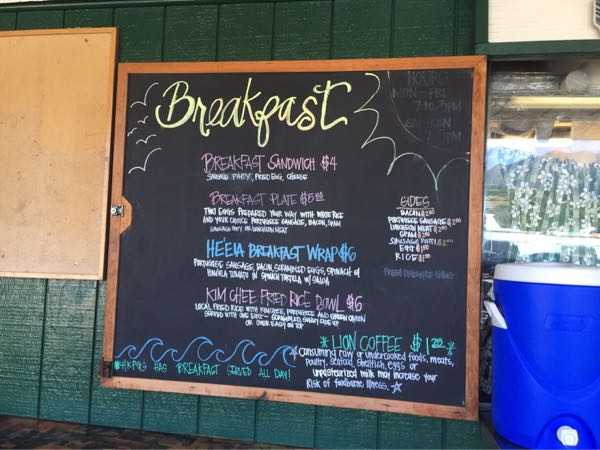 Breakfast
HOURS
MON - FRI
BREAKFAST SANDWICH $4
SAUSAGE PATTY, FRIED EGG, CHEESE
BREAKFAST PLATE $5.50
TWO EGGS PREPARED YOUR WAY WITH WHITE RICE
AND YOUR CHOICE PORTUGUESE SAUSAGE, BACON, SPAM
SAUSAGE PATTY OR LUNCHEON MEAT
HE'EIA BREAKFAST WRAP $6
PORTUGUESE SAUSAGE, BACON, SCRAMBLED EGGS, SPINACH &
TOMATO IN SPINACH TORTILLA W/ SALSA
KIM CHEE FRIED RICE BOWL $6
LOCAL FRIED RICE WITH KIM CHEE, PORTUGUESE AND GREEN ONION
SERVED WITH ONE EGG - SCRAMBLED, SUNNY SIDE UP
OR OVER EASY ON TOP
SIDES
BACON
PORTUGUESE SAUSAGE
LUNCHEON MEAT
SPAM
SAUSAGE PATTY
EGG
RICE
*LION COFFEE $1.25*
*CONSUMING RAW OR UNDERCOOKED FOODS, MEATS,
POULTRY, SEAFOOD, SHELLFISH, EGGS OR
UNPASTEURIZED MILK MAY INCREASE YOUR
RISK OF FOODBORNE ILLNESS.
HAS BREAKFAST SERVED ALL DAY!